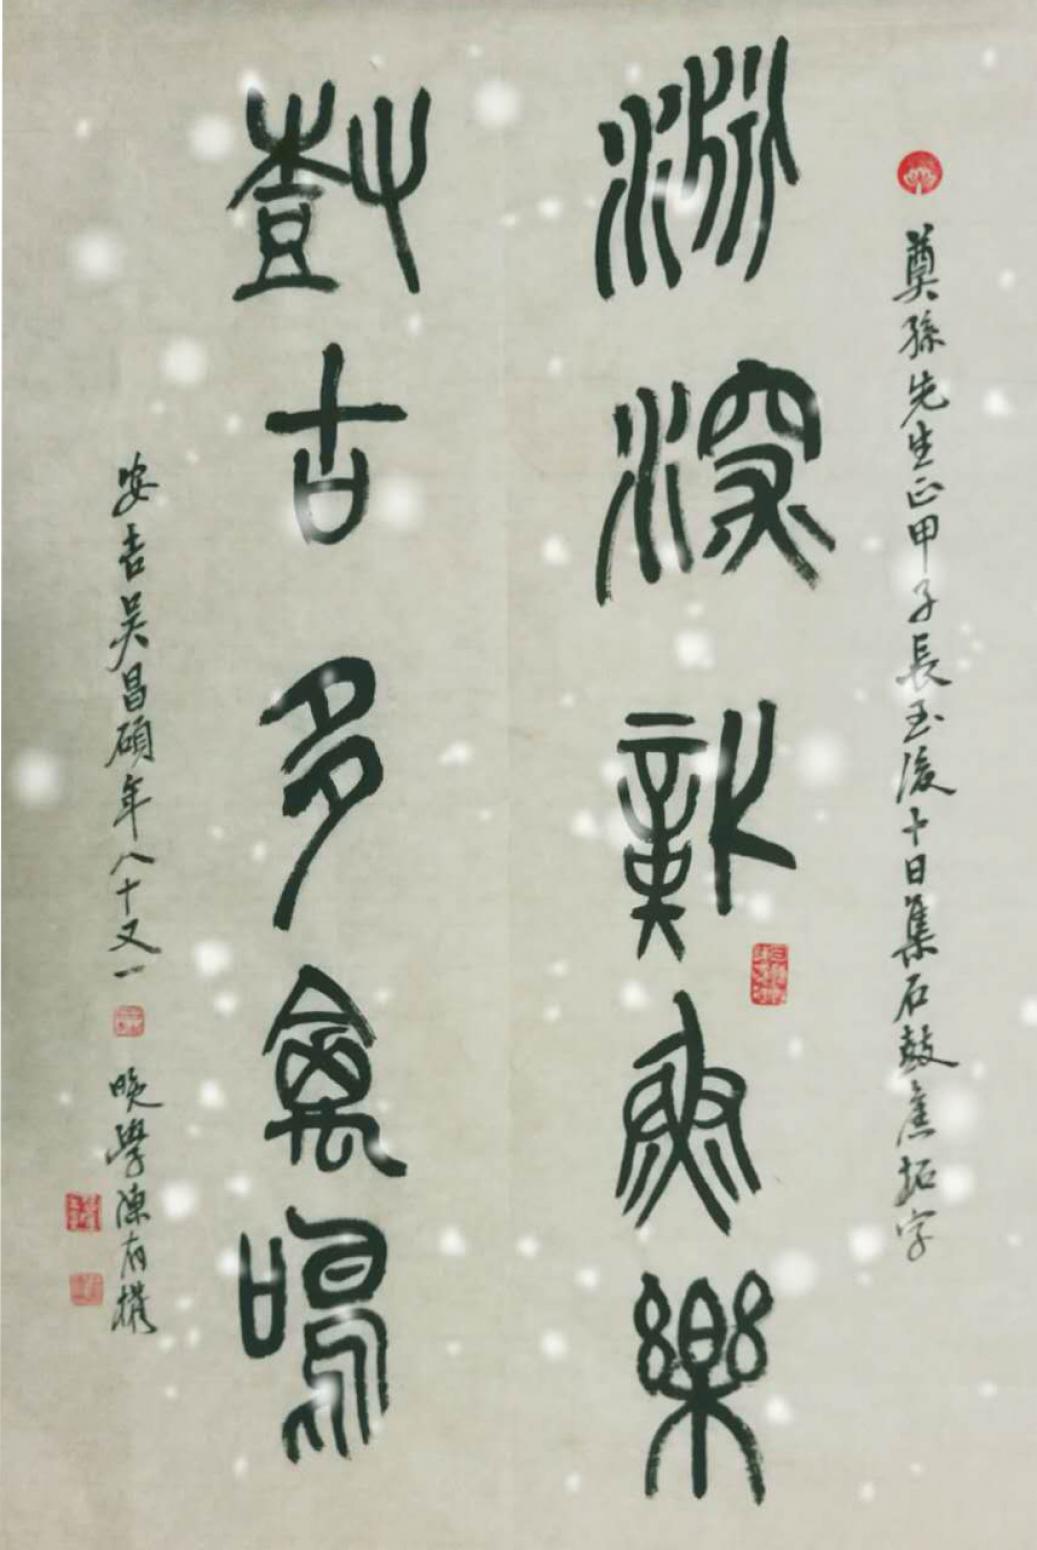 奠孫先生正甲子長至後十日集石鼓舊拓字
淵深識魚樂
樹古多禽鳴
安吉吳昌碩年八十又一
晚學陳有